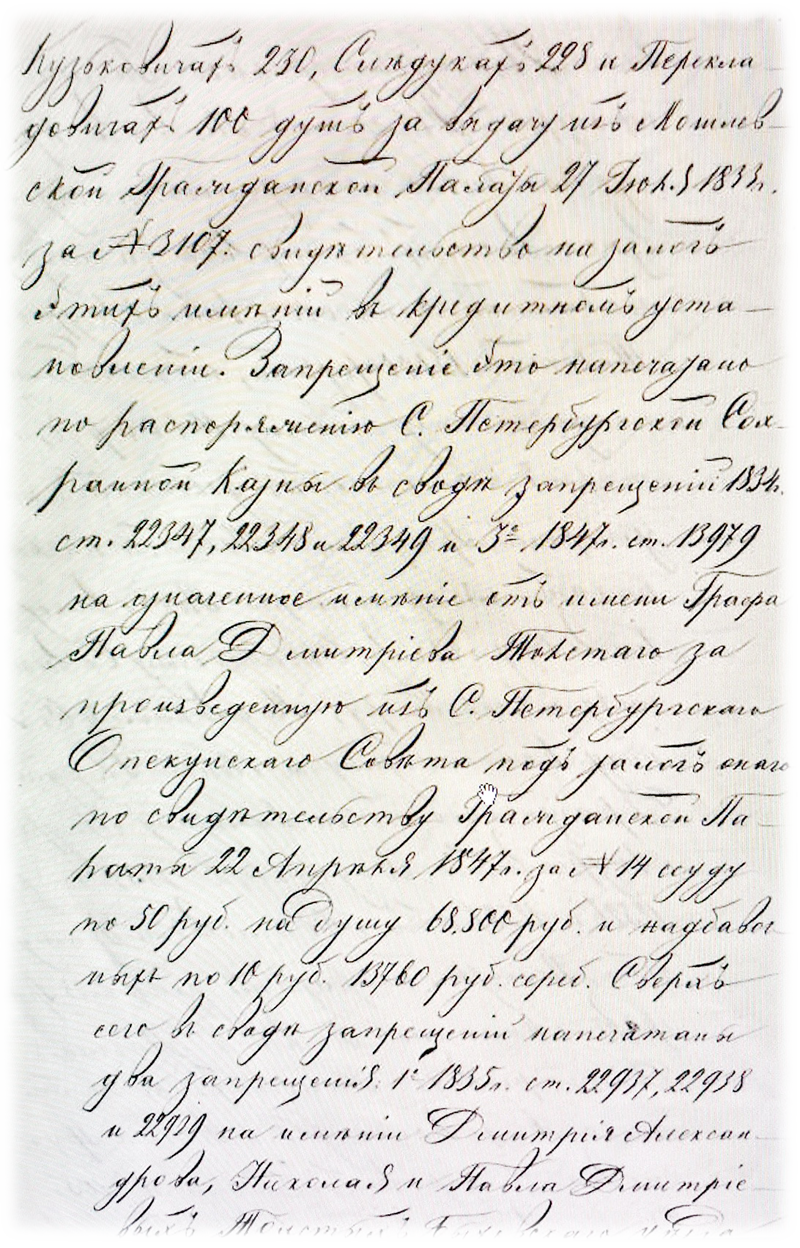 Кузьковичахъ 230, Синдукахъ 228 и Перекла-
довичахъ 100 душъ за выдачу изъ Могилев-
ской Гражданской Палаты 27 Іюля 1833г.
за № 3107. свидѣтельство на залогъ
этихъ имѣній въ кредитномъ уста-
новленіи. Запрещеніе это напечатано
по распоряженію С. Петербургской Сох-
ранной Казны въ сводѣ запрещеній 1834г.
ст. 22347, 22348 и 22349 и 3е 1847г. ст. 13979
на означенное имѣніе отъ имени Графа
Павла Дмитріева Толстаго за
произведенную изъ С. Петербургскаго
Опекунскаго Совѣта подъ залогъ онаго
по свидѣтельству Гражданской Па-
латы 22 Апрѣля 1847г. за № 14 ссуду
по 50 руб. на душу 68.800 руб. и надбавоч-
ныхъ по 10 руб. 13760 руб. сереб. Сверхъ
сего въ сводѣ запрещеній напечатаны
два запрещенія: 1е 1835г. ст. 22937, 22938
и 22939 на имѣніи Дмитрія Алексан-
дрова, Николая и Павла Дмитріе-
выхъ Толстыхъ